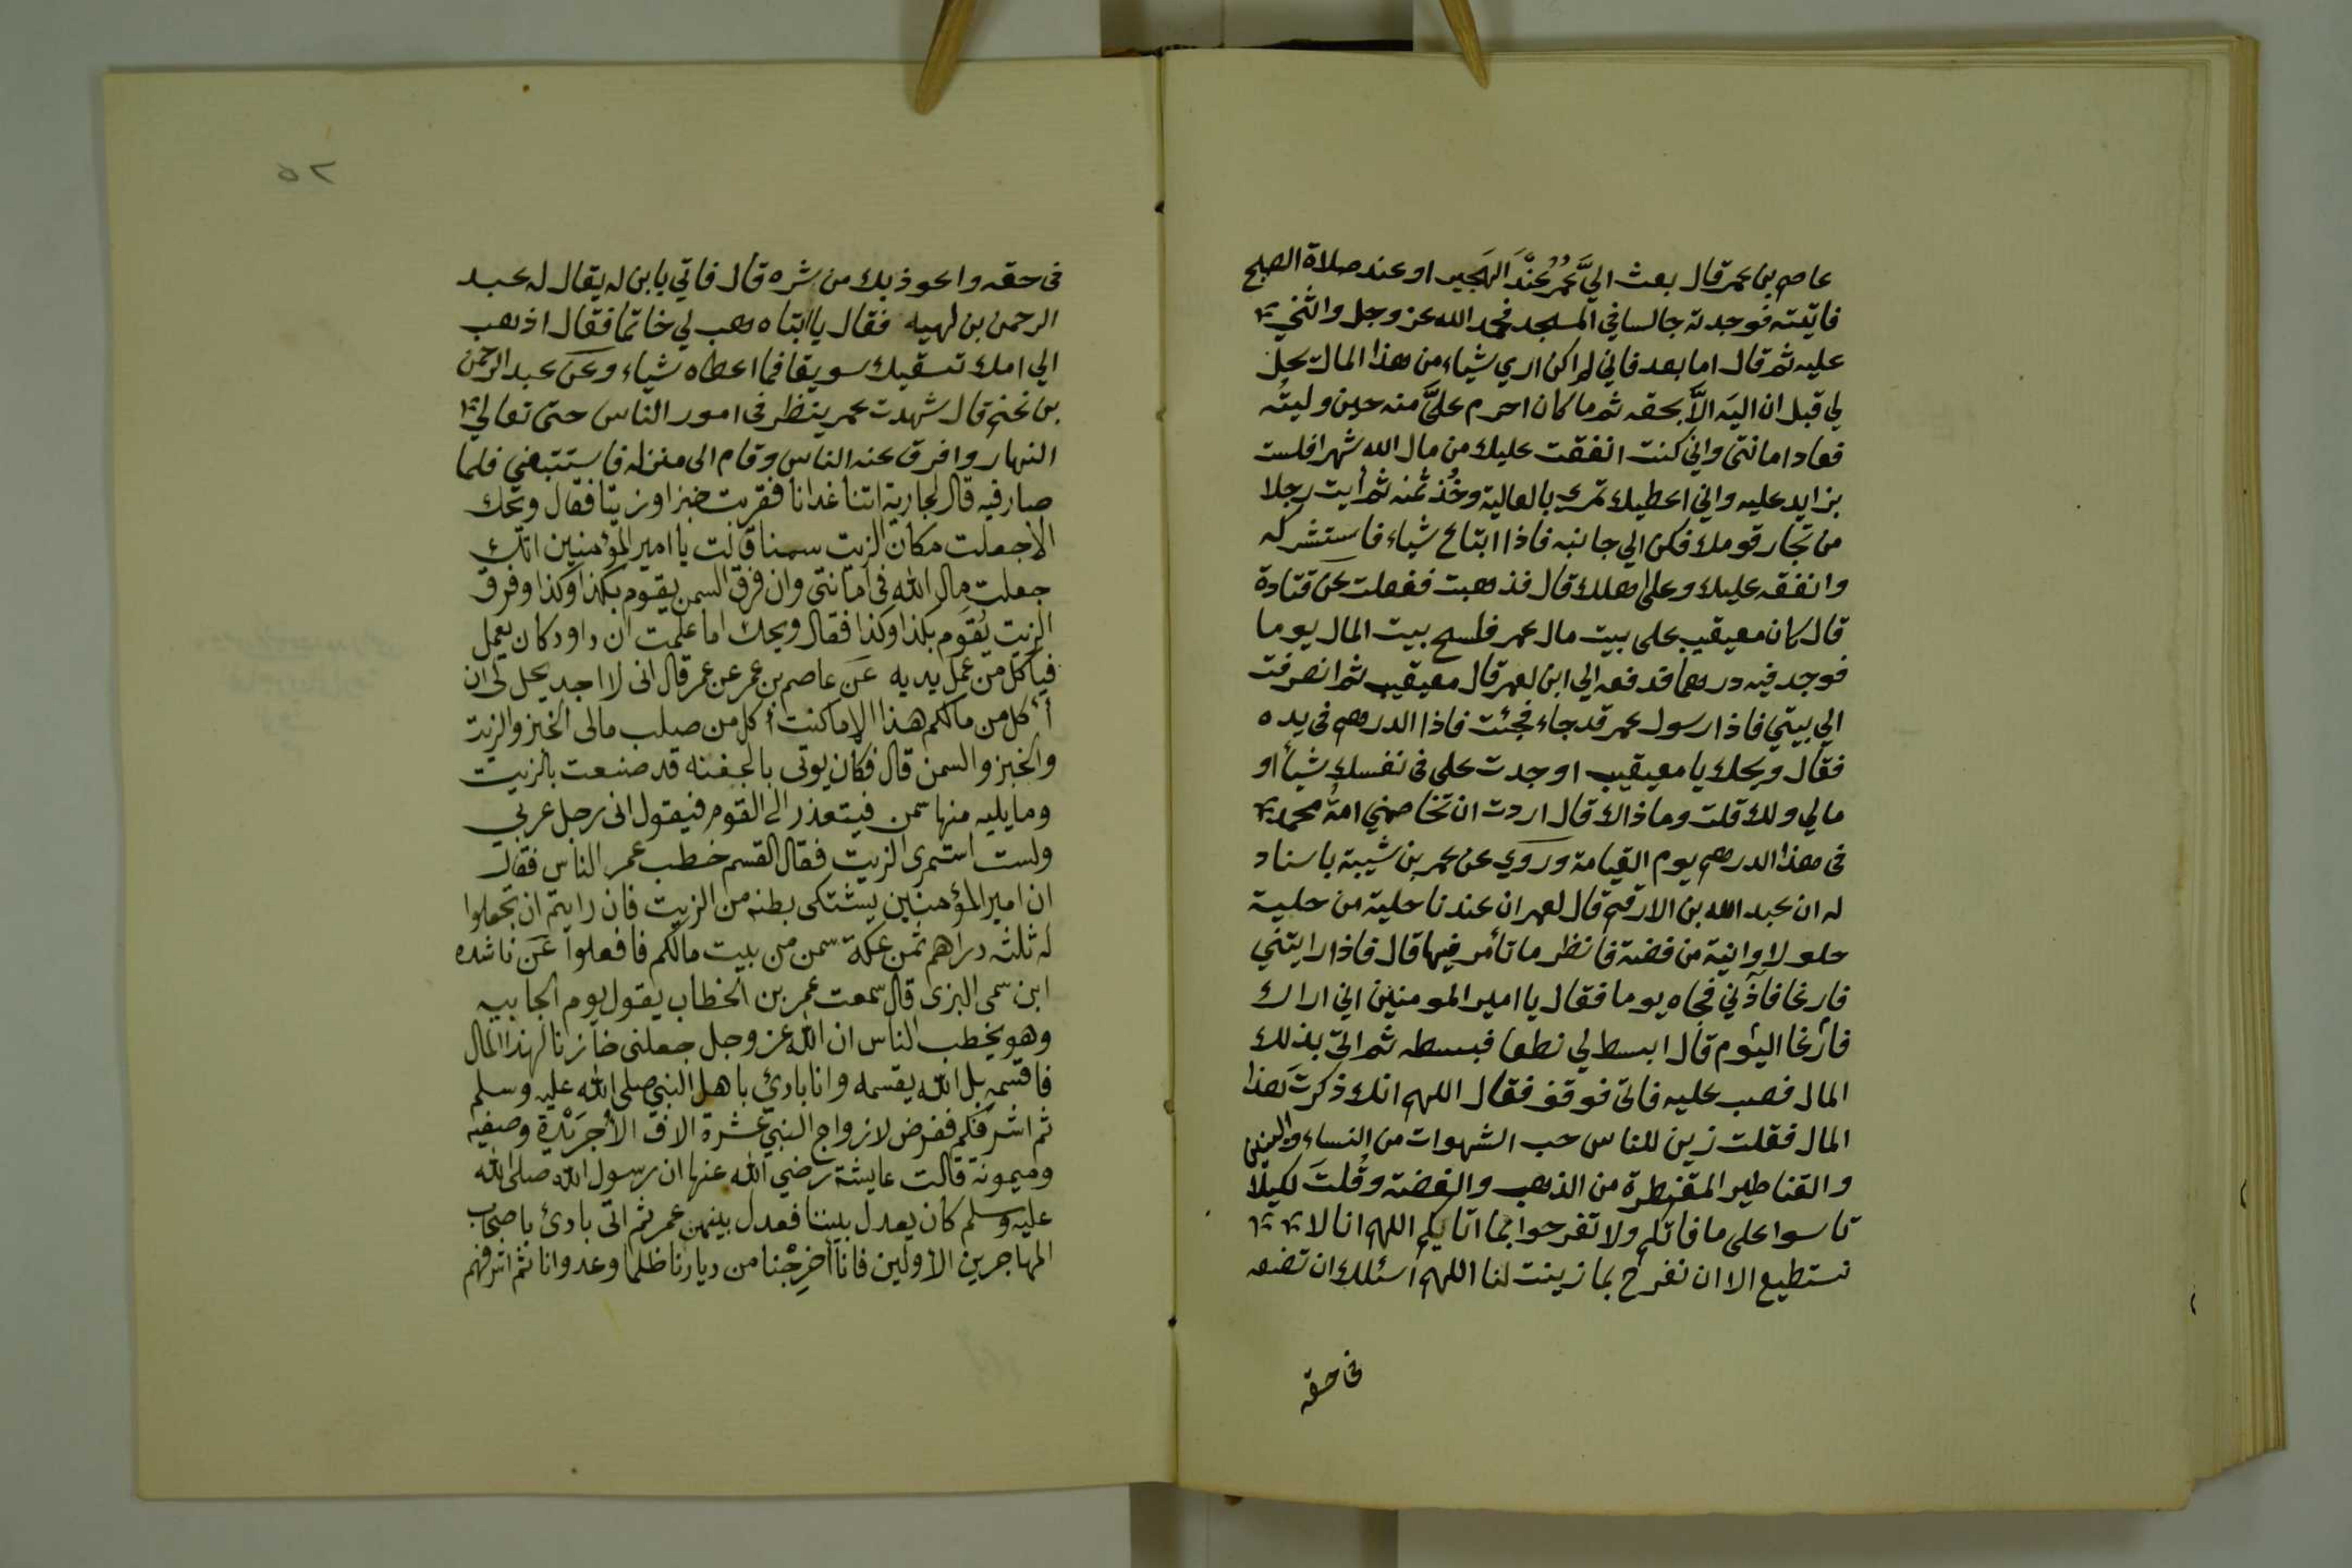 عاصم بن عمر قال بعث اليَّ عُمرُ عِنْدَ الهَجير او عند صلاة الصبح
فاتيته فوجدته جالسا في المسجد فحمد الله عز وجل واثني
عليه ثم قال اما بعد فاني لم اكن اري شياء من هذا المال يحل
لي قبل ان اليَه الاَّ بحقه ثم ما كان احرم عليَّ منه حين وليتُه
فعاد امانتي واني كنت انفقت عليك من مال الله شهرا فلست
بزايد عليه واني اعطيك تمرى بالعالية وخُذ ثمنه ثم أيت رجلا
من تجار قومك فكن الي جانبه فاذا ابتاع شياء فاستشركه
وانفقه عليك وعلى اهلك قال فذهبت ففعلت عن قتادة
قال كان معيقيب على بيت مال عمر فلسح بيت المال يوما
فوجد فيه درهما قدفعه الي ابن لعمر قال معيقيب ثم انصرفت
الي بيتي فاذا رسول عمر قد جاء فجئت فاذا الدرهم في يده
فقال ويحك يا معيقيب اوجدت على في نفسك شيأ او
مالي ولك قلت وما ذاك قال اردت ان تخاصمني امةُ محمد
في هذا الدرهم يوم القيامة وروي عن عمر بن شيبة باسناد
له ان عبد الله بن الارقم قال لعمر ان عندنا حلية من حلية
حلولا وانية من فضة فانظر ما تأمر فيها قال فاذا رايتني
فارغا فآذني فجاه يوما فقال يا امير المومنين اني اراك
فارٔغا الئوم قال ابسط لي نطعا فبسطه ثم اتي بذلك
المال فصب عليه فاتى فوقف فقال اللهم انك ذكرت هذا
المال فقلت زين للناس حب الشهوات من النساء والبنين
والقناطير المقنطرة من الذهب والفضة وقُلتَ لكيلا
تاسوا على ما فاتكم ولا تفرحوا بما اتايكم اللهم انا لا
نستطيع الا ان نفرح بما زينت لنا اللهم اسئلك ان تضعه
في حقه
٥٢
في حقه واعوذ بك من شره قال فاتي بابن له يقال له عبد
الرحمن بن لهيه فقال يا ابتاه هب لي خاتما فقال اذهب
الي امك تسقيك سويقا فما اعطاه شياء وعن عبد الرحمن
بن غنم قال شهدت عمر ينظر في امور الناس حتى تعالي
النهار وافرق عنه الناس وقام الى منزله فاستتبعني فلما
صار فيه قال لجارية اتنا غدانا فقربت خبزا وزيتا فقال ويحك
الاجعلت مكان الزيت سمنا قالت يا امير المؤمنين انك
جعلت مال الله في امانتي وان فرق السمن يقوم بكذا وكذا وفرق
الزيت يُقَوم بكذا وكذا فقال ويحك اما علمت ان داود كان يعمل
فيأكل من عمل يديه عن عاصم بن عمر عن عمر قال انى لا اجد يحل لى ان
أٔكل من مالكم هذا الا ما كنت أٔكل من صلب مالى الخبز والزيت
والخبز والسمن قال فكان يوتى بالجفنه قد صنعت بالزيت
ومايليه منها سمن فيتعذر الى القوم فيقول انى رجل عربي
ولست استمرى الزيت فقال القسم خطب عمر الناس فقال
ان امير المؤمنين يشتكى بطنه من الزيت فان رايتم ان تجعلوا
له ثلثه دراهم ثمن عكة سمن من بيت مالكم فافعلوا عن ناشده
ابن سمى البزى قال سمعت عمر بن الخطاب يقول يوم الجابيه
وهو يخطب الناس ان الله عز وجل جعلنى خازنا لهذا المال
فاقسمه بل الله يقسمه وانا بادئ باهل النبي صلى الله عليه وسلم
ثم اشرفكم ففرض لازواج النبي عشرة الاف الا جريدة وصفيه
وميمونة قالت عايشة رضي الله عنها ان رسول الله صلى الله
عليه وسلم كان يعدل بيننا فعدل بينهن عمر ثم اتى بادئ باصحاب
المهاجرين الأولين فانا أُخرِجْنا من ديارنا ظلما وعدوانا ثم اشرفهم